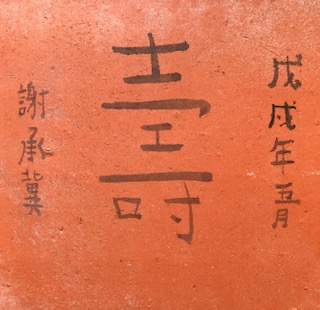 戊戌年五月
壽
謝承冀